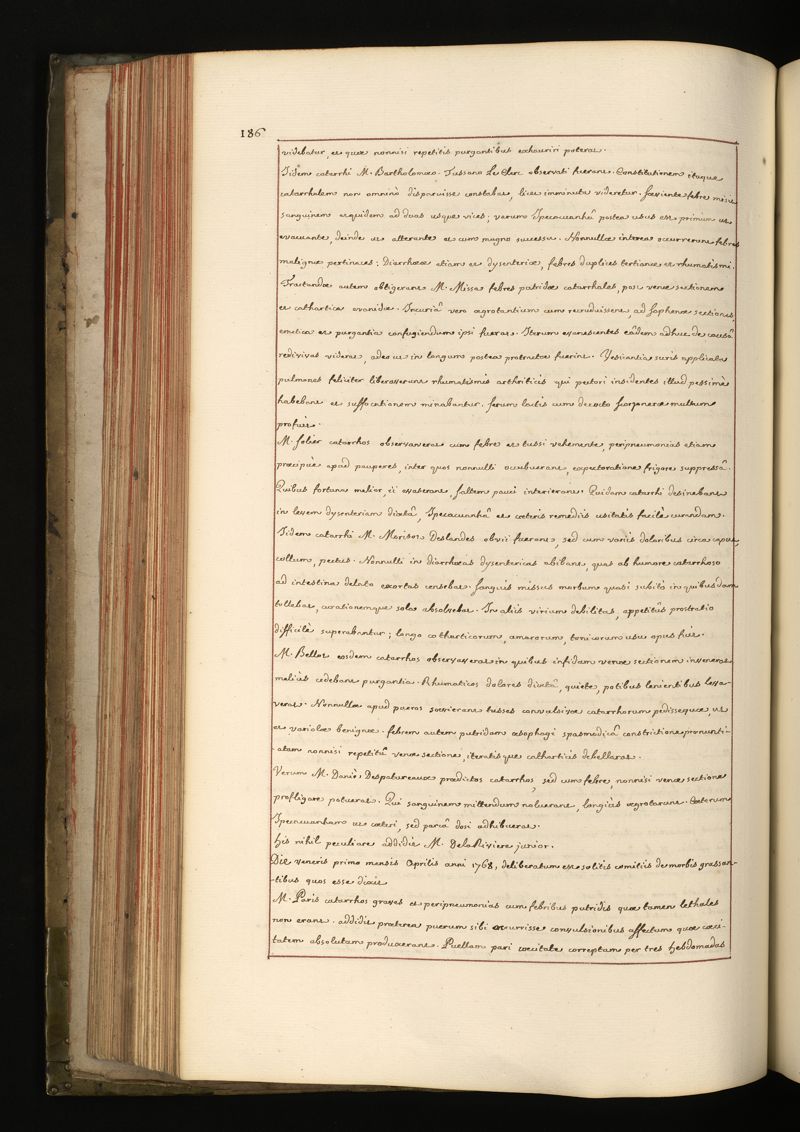 186
videbatur, et quæ nonnisi repetitis purgantibus exhauriri poterat.
Iidem catarrhi M. Bartholomæo Tussano Le Clerc observati fuerant. Constitutionem itaque
catarrhalem non omninò disparuisse constabat, licet imminuta videretur. Sæviente febre misit
sanguinem et quidem ad duas usque vices; verum Ipecacuanhâ postea usus est primùm ut
evacuante, deinde ut alterante et cum magno successu. Nonnullæ interea occurrerunt febres
malignæ pertinaces; Diarrhoeæ etiam et dysenteriæ, febres duplices tertianæ et rhumatismi.
Tractandæ autem obtigerant M. Missa febres putridæ catarrhales, post venæ sectionem
et cathartica evanidæ. Incuriâ vero ægrotantium cum recruduissent, ad saphenæ sectiones,
emetica et purgantia confugiendum ipsi fuerat. Iterum evanescentes eâdem adhuc de causâ
redivivas viderat, adeo ut in longum postea protractæ fuerint. Vesicantia suris applicata
pulmones feliciter liberaverunt rhumatismis arthriticis qui pectori insidentes illud pessimè
habebant et suffocationem minabantur. serum lactis cum decocto scorzoneræ multum
profuit.
M. Solier catarrhos observaverat cum febre et tussi vehemente, peripneumonias etiam
præcipuè apud pauperes, inter quos nonnulli occubuerant, expectoratione frigore suppressâ.
Quibus fortuna melior, ii evaserant, saltem pauci interierant. Quidam catarrhi desinebant
in levem dysenteriam dictâ, Ipecacuanhâ et cæteris remediis usitatis facilè curandam.
Iidem catarrhi M. Morisot Deslandes obvii fuerant, sed cum variis doloribus circa caput,
collum, pectus. Nonnulli in diarrhæas dysentericas abibant, quas ab humore catarrhoso
ad intestina delato exortas censebat. Sanguis missus morbum quasi subitò in quibusdam
tollebat, curationemque sola absolvebat. In aliis virium debilitas, appetitûs prostratio
difficilè superabantur; longo catharticorum, amarorum, tonicorum usu opus fuit.
M. Bellot eosdem catarrhos observaverat in quibus infidam venæ sectionem invenerat
meliùs cedebant purgantia. Rhumaticos dolores diætâ, quiete, potibus lenientibus leva-
verat. Nonnullæ apud pueros sævierant tusses convulsivæ catarrhorum pedissequæ, ut
et variolæ benignæ. febrem autem putridam œsophagi spasmodicâ constrictione pronunti-
atam nonnisi repetitâ venæ sectione, iteratisque catharticis debellarat.
Verum M. Danié Despatureaux prædictos catarrhos, sed cum febre, nonnisi venæ sectione
profligare potuerat. Qui sanguinem mittendum noluerant, longiùs ægrotarunt. Cæterum
Ipecacuanham ut cæteri, sed parcâ dosi adhibuerat.
his nihil peculiare addidit M. De la Riviere junior.
Die veneris primo mensis Aprilis anni 1768, deliberatum est solitis comitiis de morbis grassan-
tibus quos esse dixit
M. Paris catarrhos graves et peripneumonias cum febribus putridis quæ tamen lethales
non erant. addidit præterea puerum sibi occurrisse convulsionibus affectum quæ cæci-
tatem absolutam produxerant. Puellam pari cæcitate correptam per tres hebdomadas